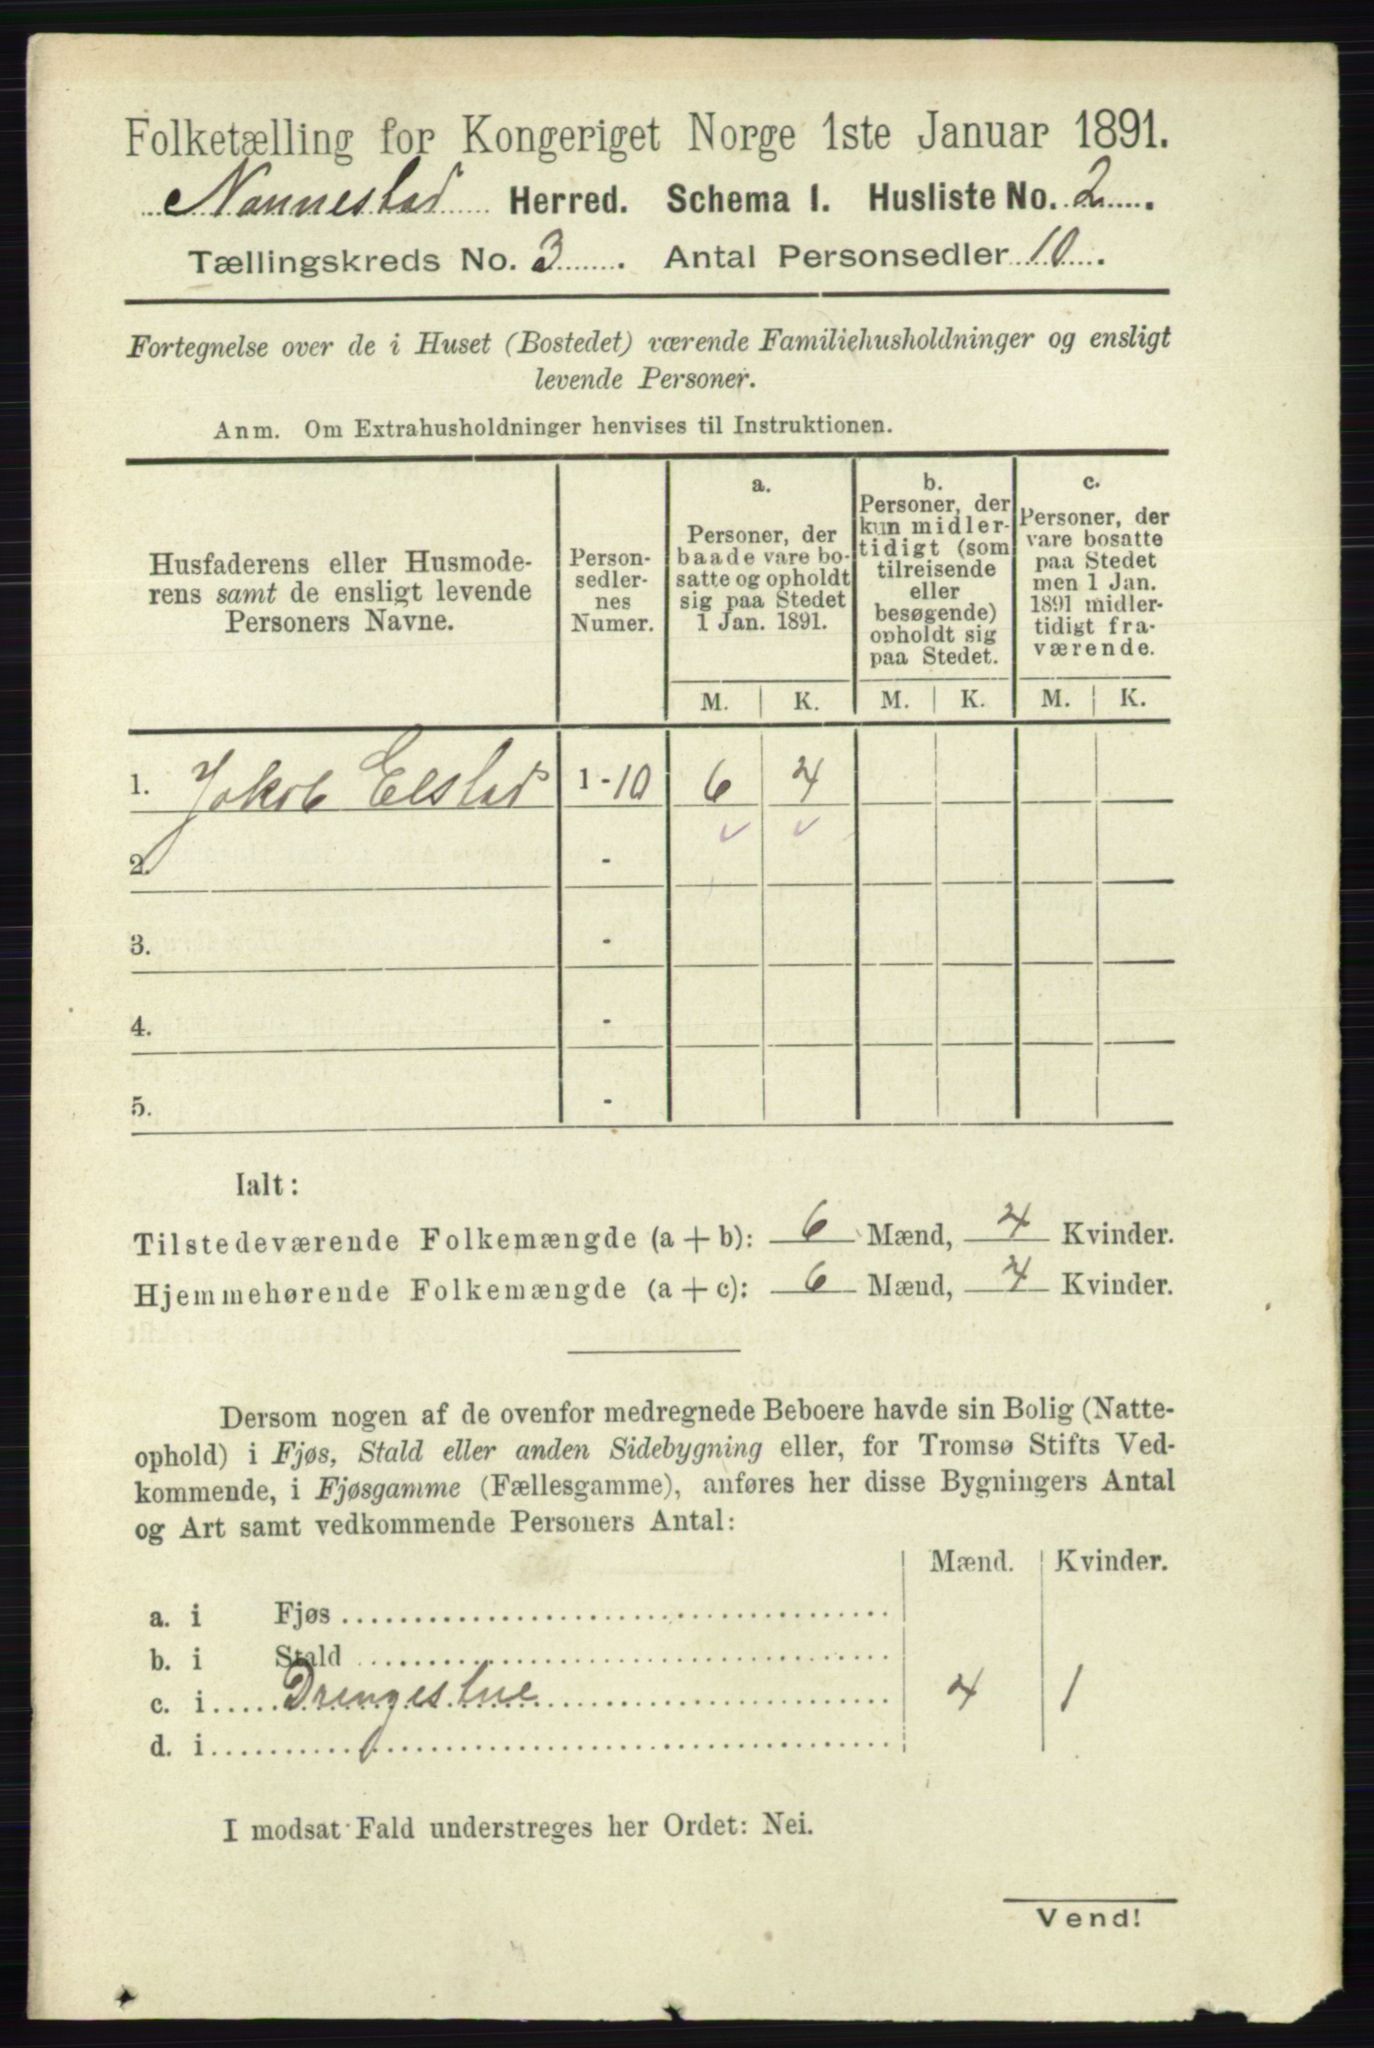 Folketælling for Kongeriget Norge 1ste Januar 1891.
Nannestad Herred. Schema I. Husliste No. 2.
Tællingskreds No. 3. Antal Personsedler 10.
Fortegnelse over de i Huset (Bostedet) værende Familiehusholdninger og ensligt
levende Personer.
Anm. Om Extrahusholdninger henvises til Instruktionen.
Husfaderens eller Husmode-
rens samt de ensligt levende
Personers Navne.
Person-
sedler-
nes
Numer.
a.
Personer, der
baade vare bo-
satte og opholdt
sig paa Stedet
1 Jan. 1891.
b.
Personer, der
kun midler-
tidigt (som
tilreisende
eller
besøgende)
opholdt sig
paa Stedet.
c.
Personer, der
vare bosatte
paa Stedet
men 1 Jan.
1891 midler-
tidigt fra-
værende.
M. K. M. K. M. K.
1. Jakob Elstad 1-10 6 4
2. -
3. -
4. -
5. -
Ialt:
Tilstedeværende Folkemængde (a + b): 6 Mænd, 4 Kvinder.
Hjemmehørende Folkemængde (a + c): 6 Mænd, 4 Kvinder.
Dersom nogen af de ovenfor medregnede Beboere havde sin Bolig (Natte-
ophold) i Fjøs, Stald eller anden Sidebygning eller, for Tromsø Stifts Ved-
kommende, i Fjøsgamme (Fællesgamme), anføres her disse Bygningers Antal
og Art samt vedkommende Personers Antal:
Mænd. Kvinder.
a. i Fjøs
b. i Stald
c. i Drengestue 4 1
d. i
I modsat Fald understreges her Ordet: Nei.
Vend!